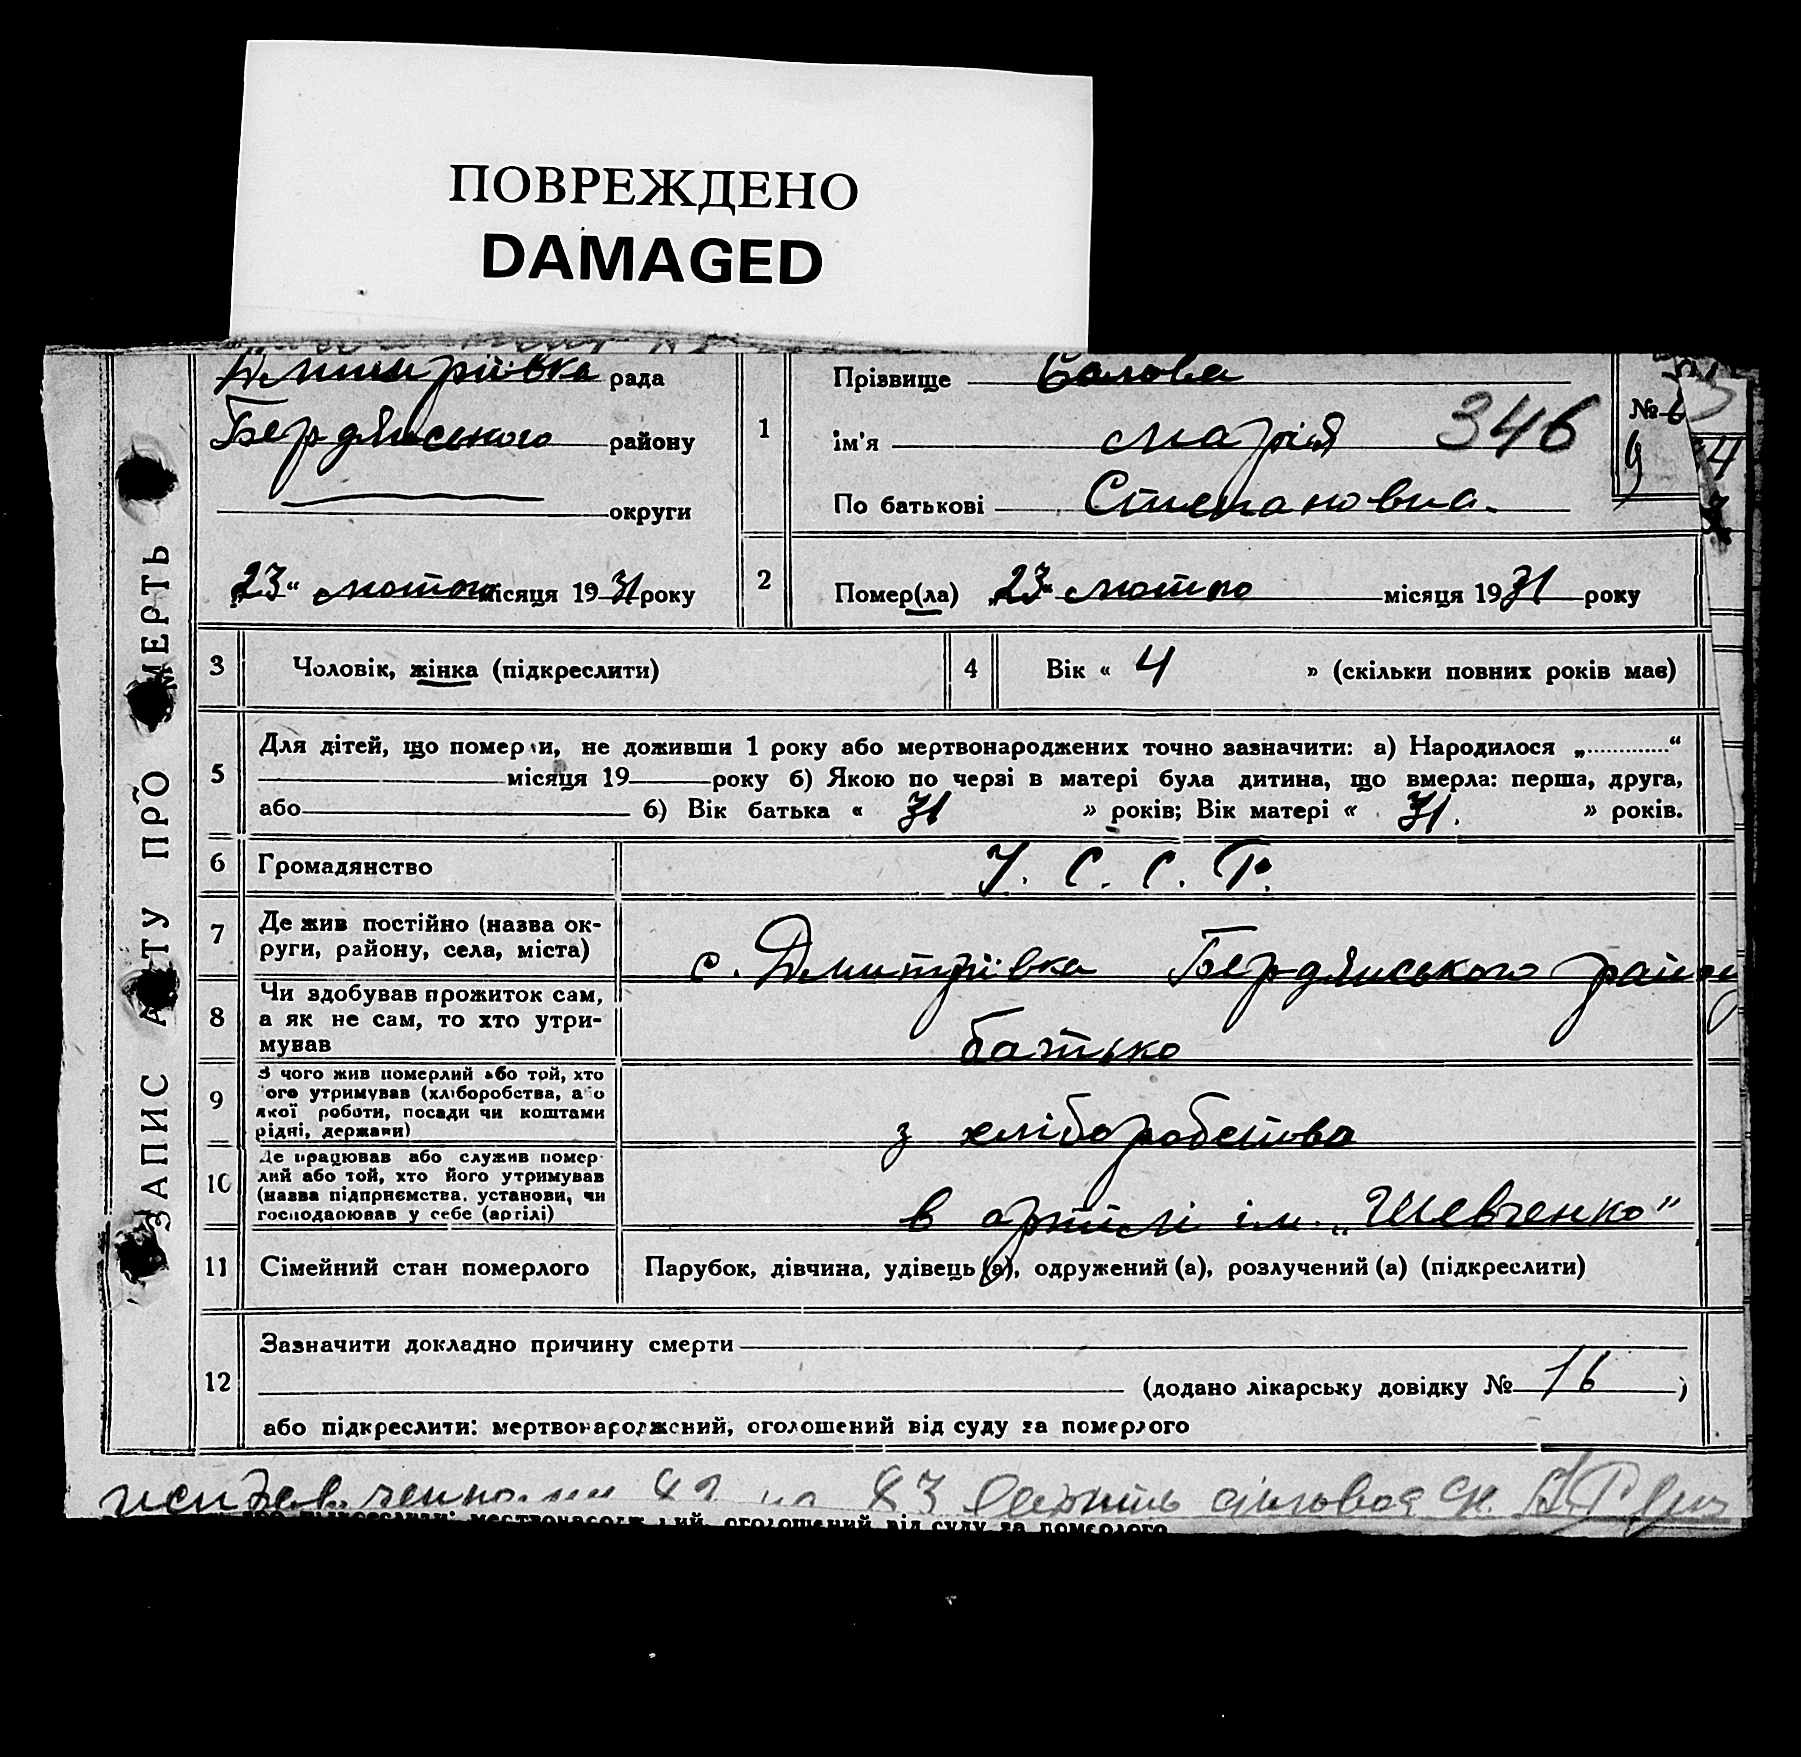 ПОВРЕЖДЕНО
DAMAGED
ЗАПИС АКТУ ПРО СМЕРТЬ
Дмитріївка рада
Бердянського району
округи
„23“ лютого місяця 1931 року
1
Прізвище
ім'я Марія 346
По батькові Степановна.
№
2
Помер(ла) „23“ лютого місяця 1931 року
3 Чоловік, жінка (підкреслити)
4 Вік « 4 » (скільки повних років має)
5 Для дітей, що померли, не доживши 1 року або мертвонароджених точно зазначити: а) Народилося „............“
місяця 19 року б) Якою по черзі в матері була дитина, що вмерла: перша, друга,
або 6) Вік батька « 31 » років; Вік матері « 31. » років.
6 Громадянство У. С. С. Р.
7 Де жив постійно (назва ок-
руги, району, села, міста)
с. Дмитріївка Бердянського району
8 Чи здобував прожиток сам,
а як не сам, то хто утри-
мував
батько
9 З чого жив померлий або той, хто
його утримував (хліборобства, або
якої роботи, посади чи коштами
рідні, держави)
з хліборобства
10 Де працював або служив помер-
лий або той, хто його утримував
(назва підприємства, установи, чи
господарював у себе (артілі)
в артілі ім. „Шевченко”
11 Сімейний стан померлого Парубок, дівчина, удівець (а), одружений (а), розлучений (а) (підкреслити)
12 Зазначити докладно причину смерти
(додано лікарську довідку № 16 )
або підкреслити: мертвонароджений, оголошений від суду за померлого
83
або підкреслити: мертвонароджений, оголошений від суду за померлого